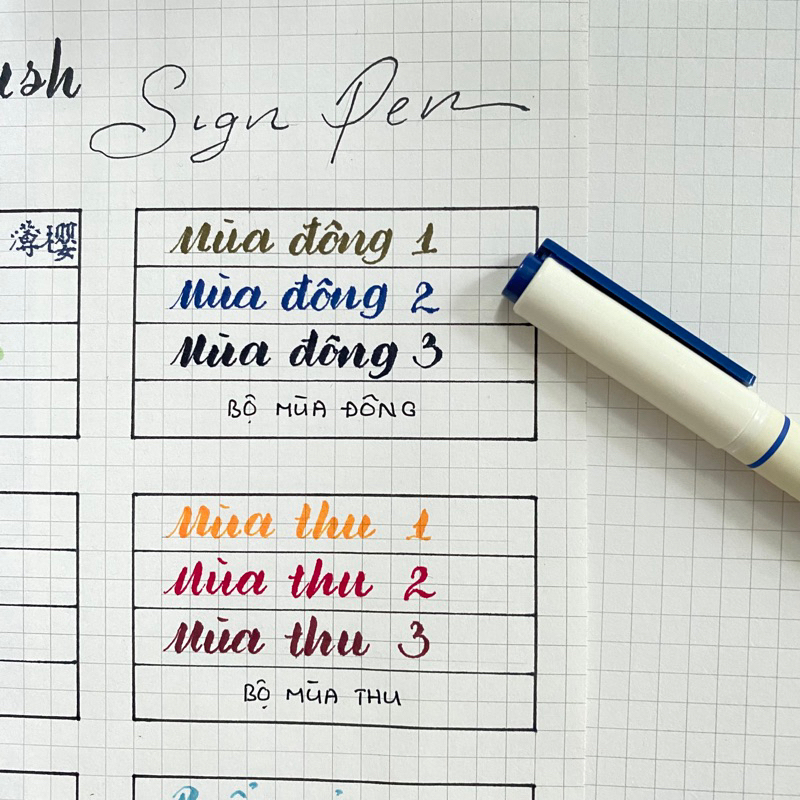 Sign Pen
薄璎
Mùa đông 1
Mùa đông 2
Mùa đông 3
BỘ MÙA ĐÔNG
Mùa thu 1
Mùa thu 2
Mùa thu 3
BỘ MÙA THU